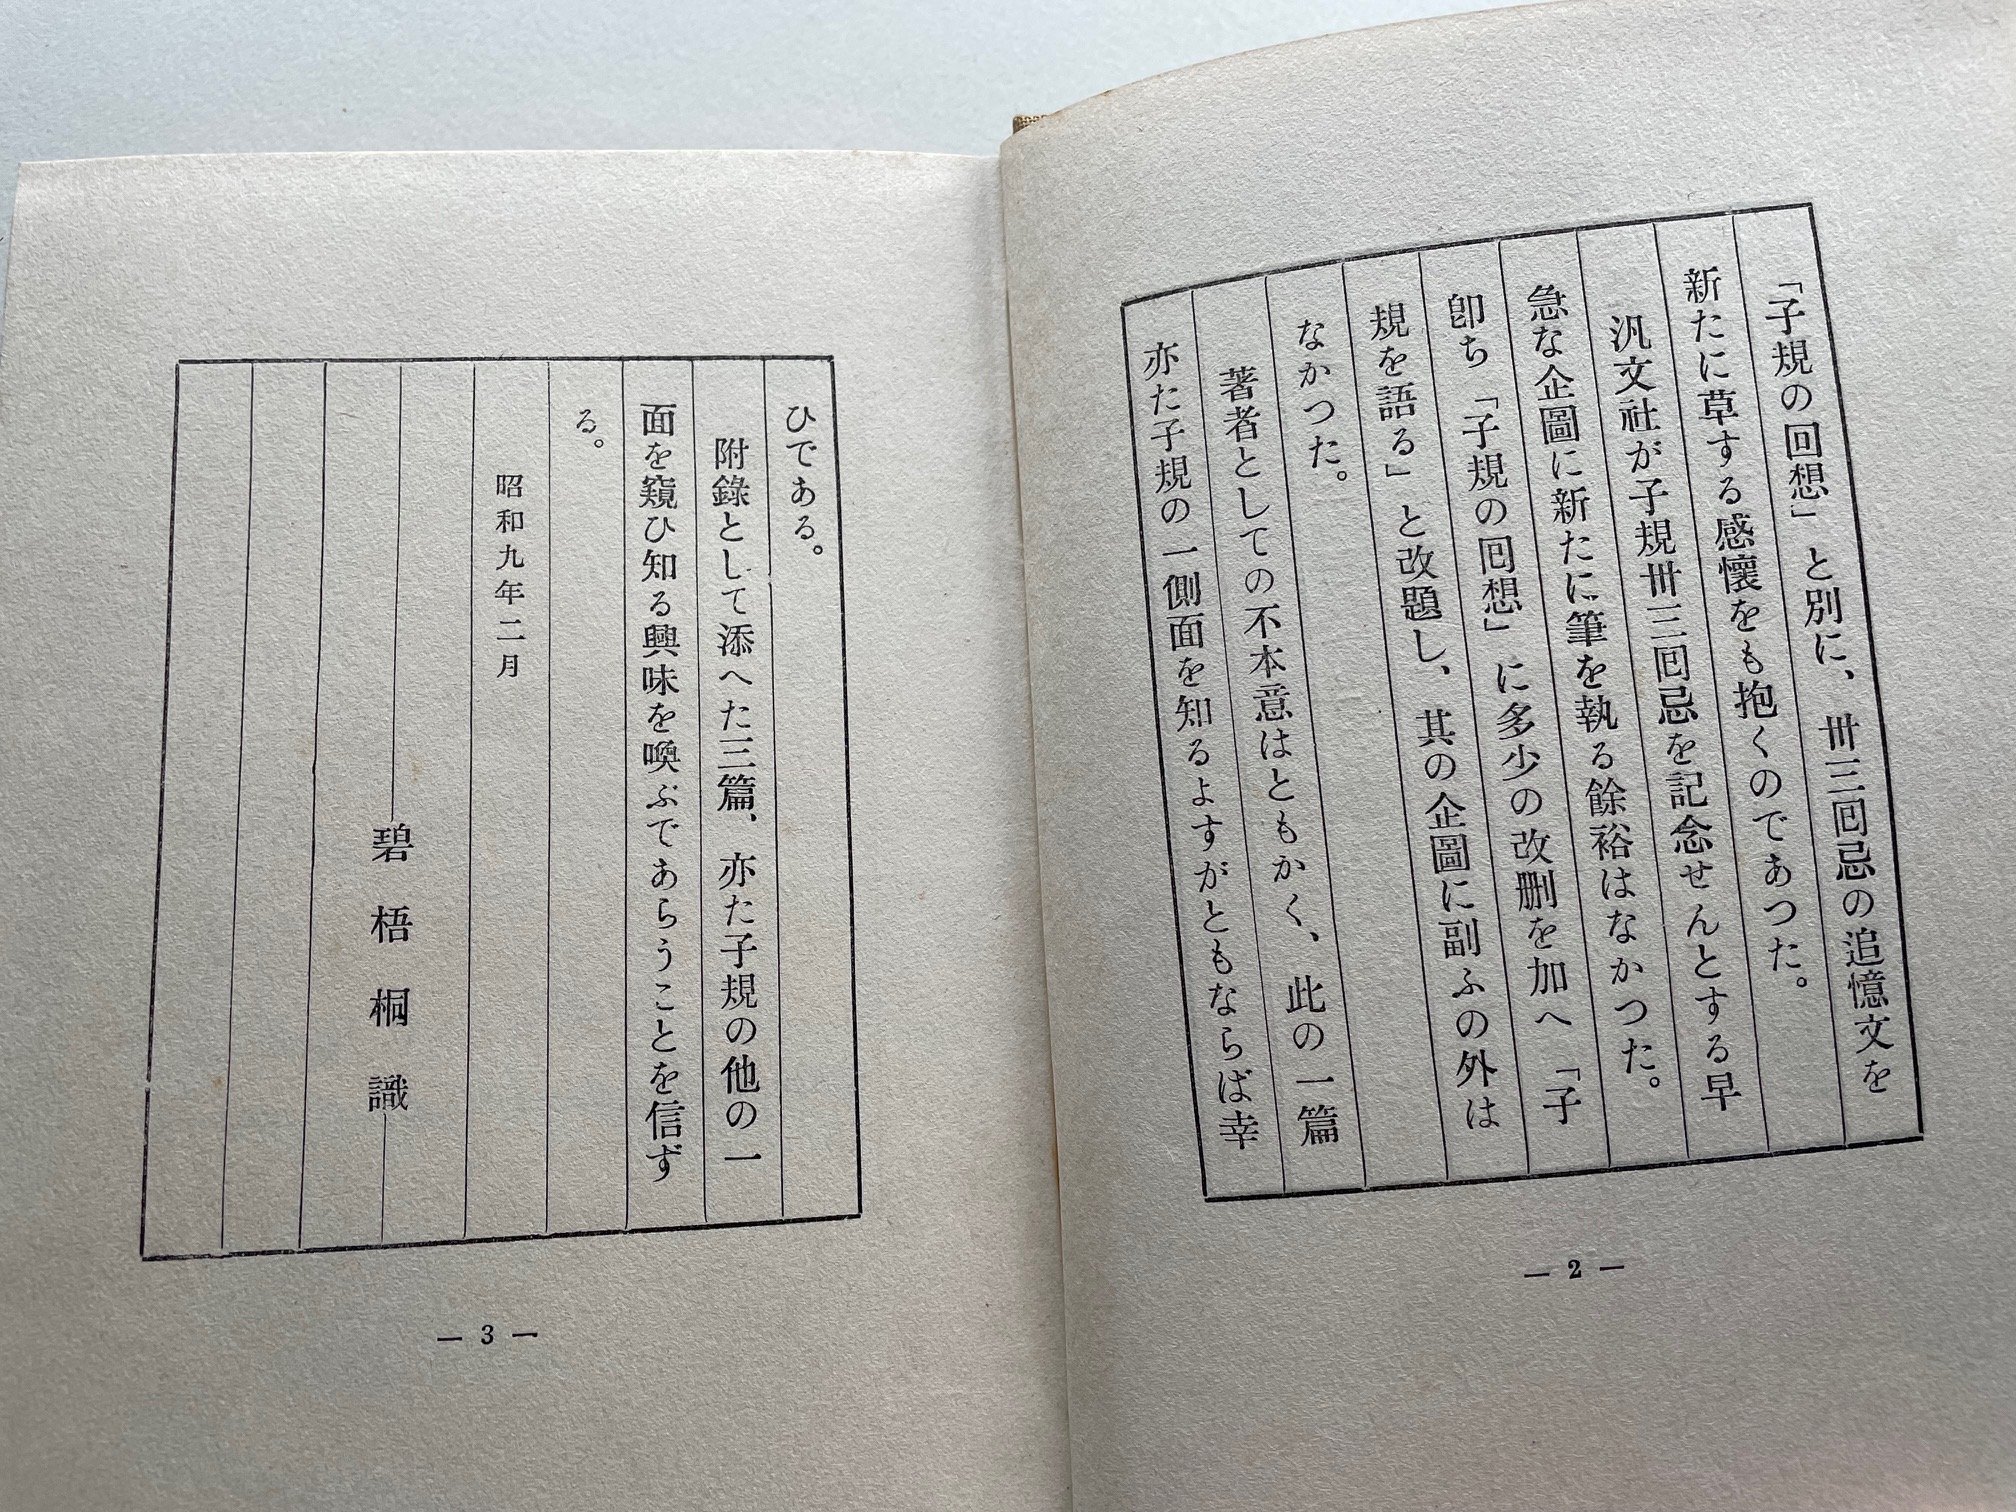 「子規の回想」と別に、卅三囘忌の追憶文を
新たに草する感懷をも抱くのであつた。
汎文社が子規卅三囘忌を記念せんとする早
急な企圖に新たに筆を執る餘裕はなかつた。
卽ち「子規の囘想」に多少の改刪を加へ「子
規を語る」と改題し、其の企圖に副ふの外は
なかつた。
著者としての不本意はともかく、此の一篇
亦た子規の一側面を知るよすがともならば幸
— 2 —
ひである。
附錄として添へた三篇、亦た子規の他の一
面を窺ひ知る興味を喚ぶであらうことを信ず
る。
昭和九年二月
碧梧桐識
— 3 —